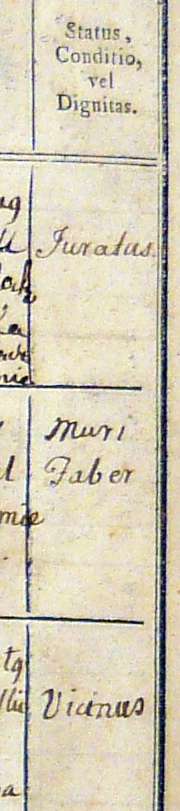 Status,
Conditio,
vel
Dignitas.
Juratus.
Muri
Faber
Vicinus